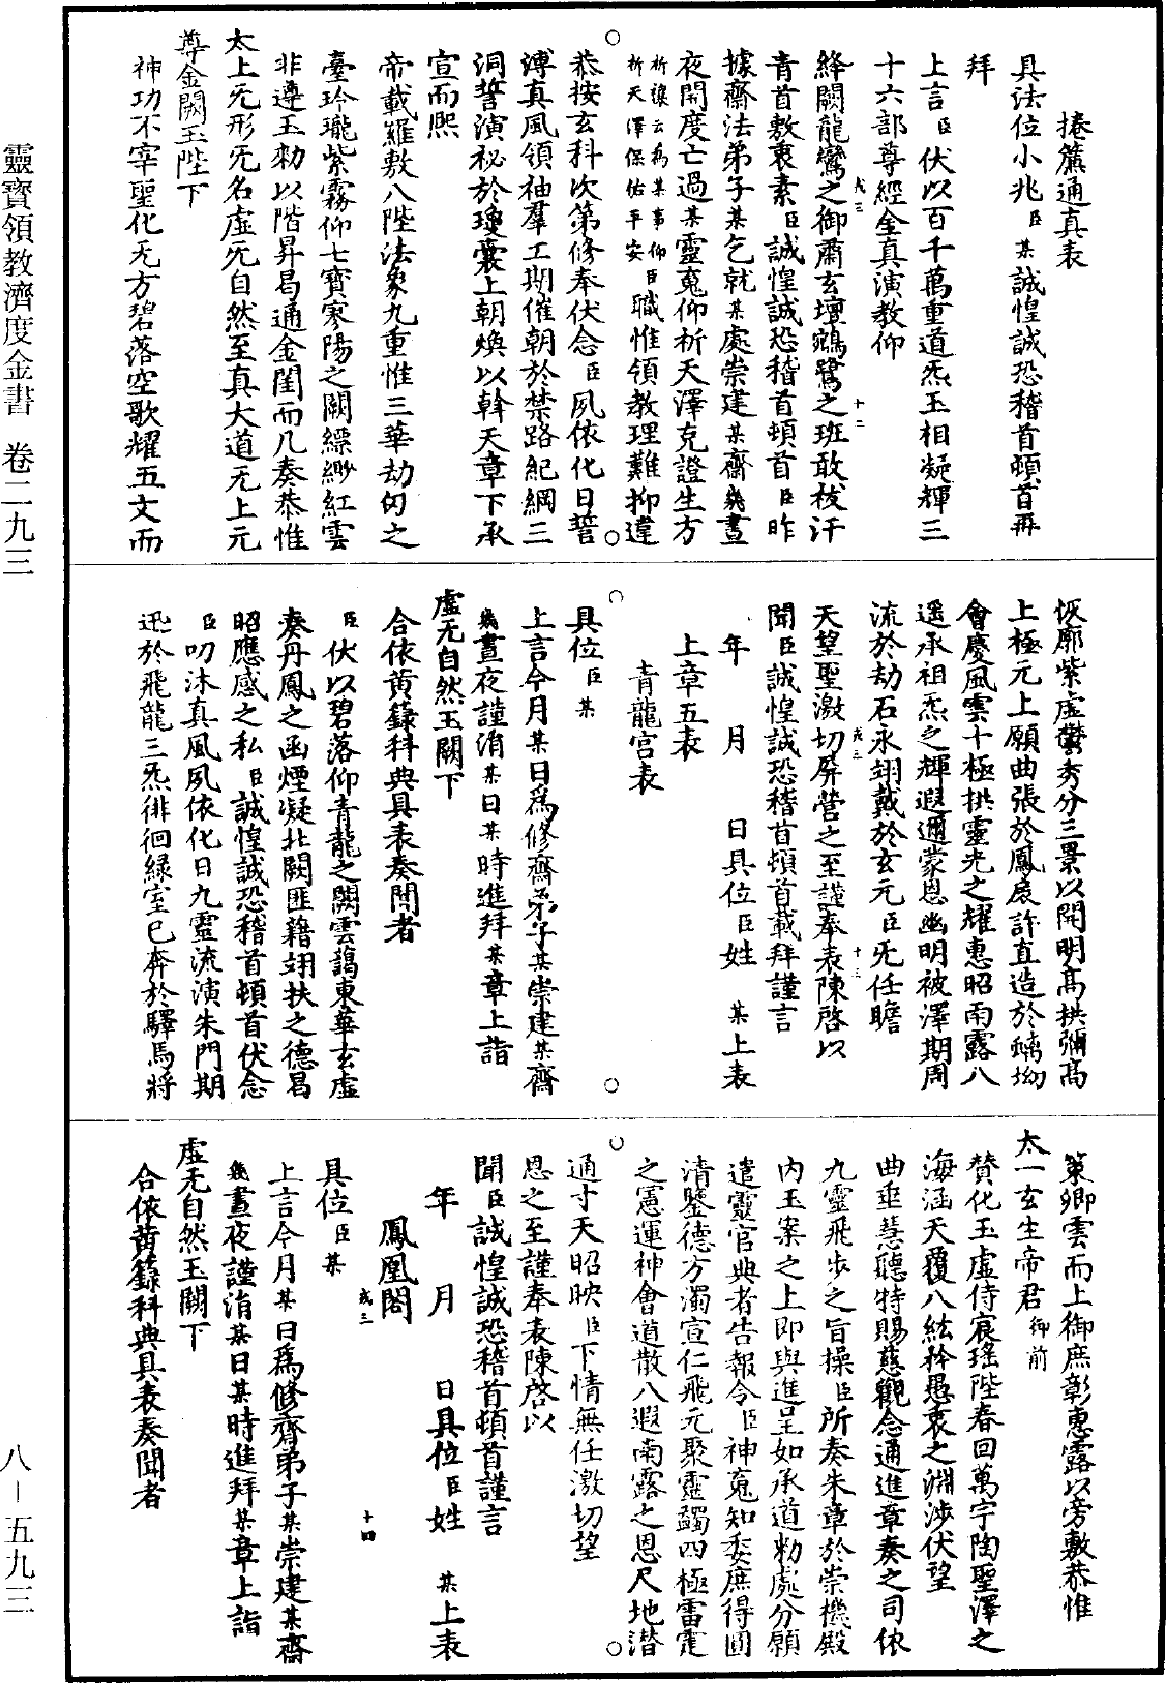 捲簾通真表
具法位小兆臣某誠惶誠恐稽首頓首再
拜
上言臣伏以百千萬重道炁玉相凝輝三
十六部尊經金真演教仰
絳闕龍鸞之御肅玄壇鵷鷺之班敢祓汗
青首敷衷素臣誠惶誠恐稽首頓首臣昨
據齋法弟子某乞就某處崇建某齋幾晝
夜開度亡過某靈䰟仰祈天澤克證生方
祈禳云為某事仰祈天澤保佑平安臣職惟領教理難抑違
恭按玄科次第修奉伏念臣夙依化日誓
溥真風領袖羣工期催朝於禁路紀綱三
洞誓演秘於瓊囊上朝煥以斡天章下承
宣而熈
帝載羅敷八陛法象九重惟三華劫仞之
臺玲瓏紫霧仰七寶寥陽之闕縹緲紅雲
非遵玉勑以階昇曷通金闺而几奏恭惟
太上旡形旡名虛旡自然至真大道无上元
尊金闕玉陛下
神功不宰聖化无方碧落空歌耀五文而
恢廓紫虛鬱秀分三景以開明高拱彌高
上極元上願曲張於鳳扆許直造於螭坳
會慶風雲十極拱靈光之耀惠昭雨露八
遥承祖炁之輝遐邇蒙恩幽明被澤期周
流於劫石永翊戴於玄元臣旡任瞻
天望聖激切屏營之至謹奉表陳啓以
聞臣誠惶誠恐稽首頓首載拜謹言
年　月　日具位臣姓　某上表
上章五表
青龍宫表
具位臣某
上言今月某日爲修齋弟子某崇建某齋
幾晝夜謹涓某日某時進拜某章上詣
虛无自然玉闕下
合依黄籙科典具表奏聞者
臣伏以碧落仰青龍之闕雲藹東華玄虛
奏丹鳳之函煙凝北闕匪藉翊扶之德曷
昭應感之私臣誠惶誠恐稽首頓首伏念
臣叨沐真風夙依化日九靈流演朱門期
迅於飛龍三炁徘徊緑室已奔於驛馬將
策卿雲而上御庶彰惠露以旁敷恭惟
太一玄生帝君御前
贊化玉虛侍宸瑤陛春回萬宇陶聖澤之
海涵天覆八紘矜愚衷之淵涉伏望
曲垂慧聽特賜慈觀念通進章奏之司依
九靈飛步之旨操臣所奏朱章於崇機殿
内玉案之上即與進呈如承道勑處分願
遣靈官典者告報令臣神䰟知委庶得圓
清鑒德方濁宣仁飛元聚靈蠲四極雷霆
之憲運神會道散八遐雨露之恩尺地潜
通寸天昭映臣下情無任激切望
恩之至謹奉表陳啓以
聞臣誠惶誠恐稽首頓首謹言
年　月　日具位臣姓　某上表
鳳凰閣
具位臣某
上言今月某日爲修齋弟子某崇建某齋
幾晝夜謹涓某日某時進拜某章上詣
虛无自然玉闕下
合依黄籙科典具表奏聞者
靈寶領教濟度金書　卷二九三
八－五九三